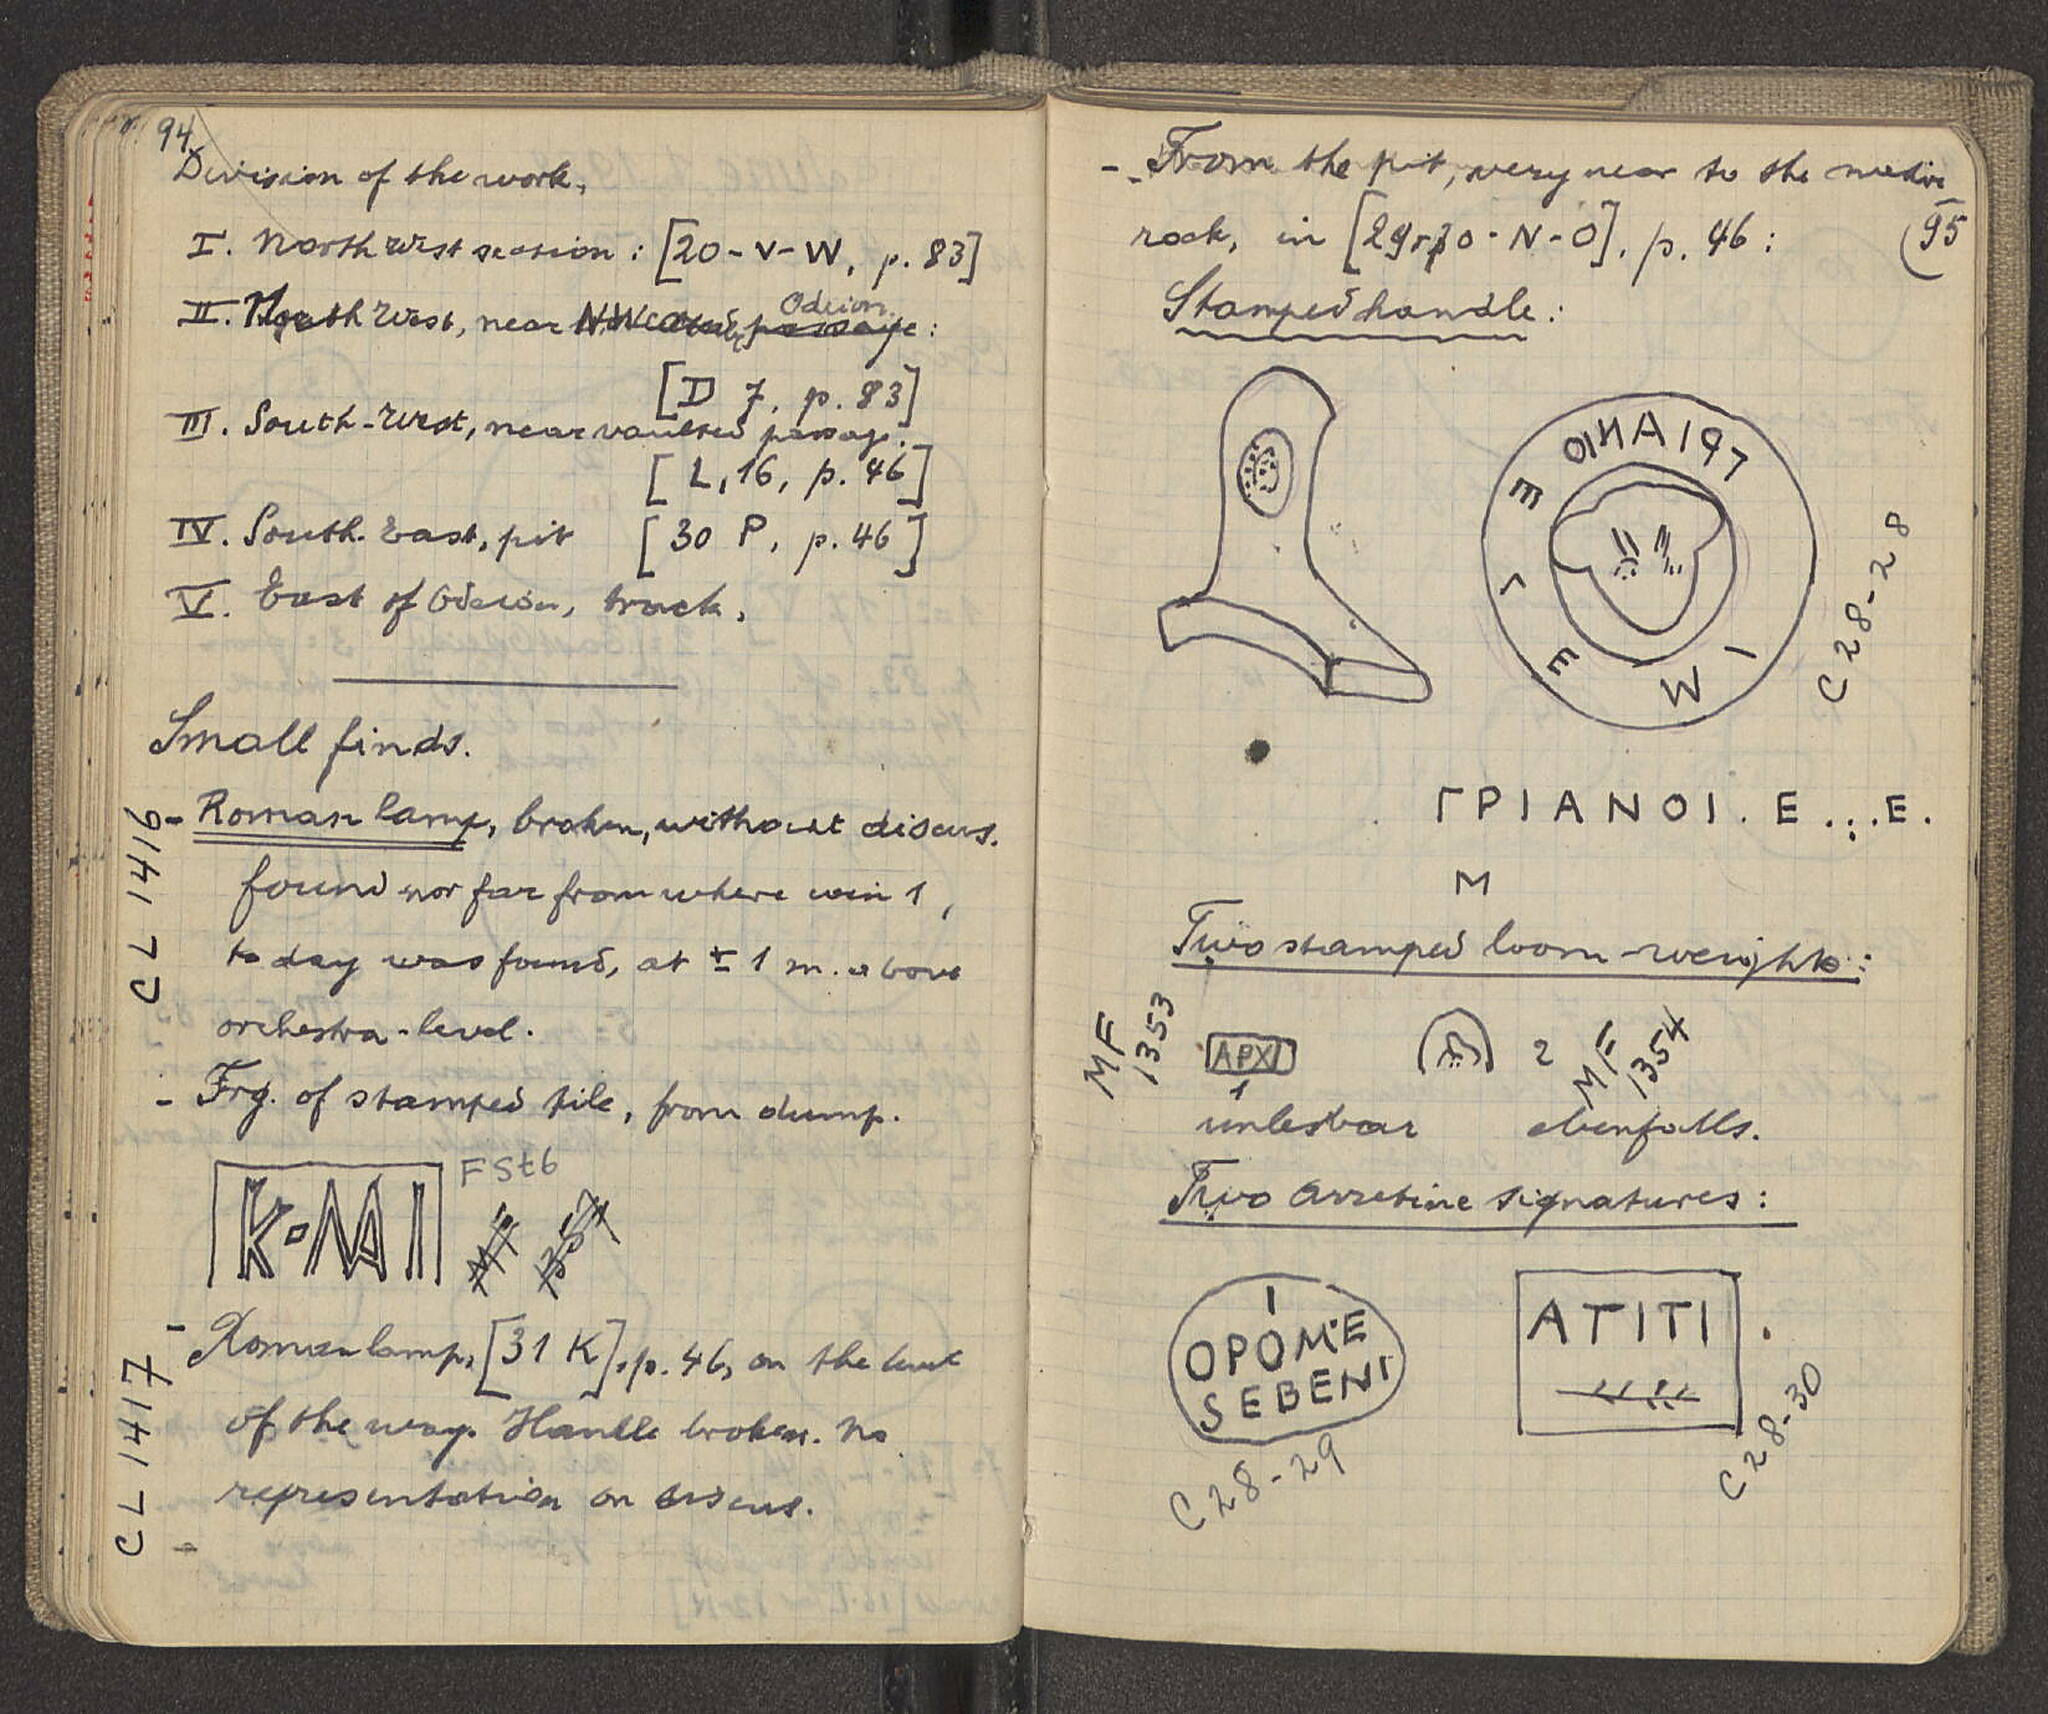 94
Division of the work.
I. North West section : [20-V-W, p. 83]
II. North West, near Odeion :
[D 7, p. 83]
III. South-West, near vaulted passage.
[L, 16, p. 46]
IV. South-East, pit [30 P, p. 46]
V. East of Odeion, track.
Small finds.
CL 1416
- Roman lamp, broken, without discus.
found not far from where coin 1,
today was found, at ± 1 m. above
orchestra-level.
- Frg. of stamped tile, from dump.
K·MAI
FSt6
CL 1417
- Roman lamp, [31 K], p. 46, on the level
of the way. Handle broken. No
representation on discus.
-
95
- From the pit, very near to the native
rock, in [29-30-N-O], p. 46 :
Stamped handle :
C 28-28
ΓΡΙΑΝΟΙ . Ε . : . Ε .
M
Two stamped loom-weights :
MF 1353
APX
1
2
MF 1354
unlesbar ebenfalls.
Two Arretine signatures :
I
OPOM·E
SEBENI
C 28-29
ATITI
C 28-30